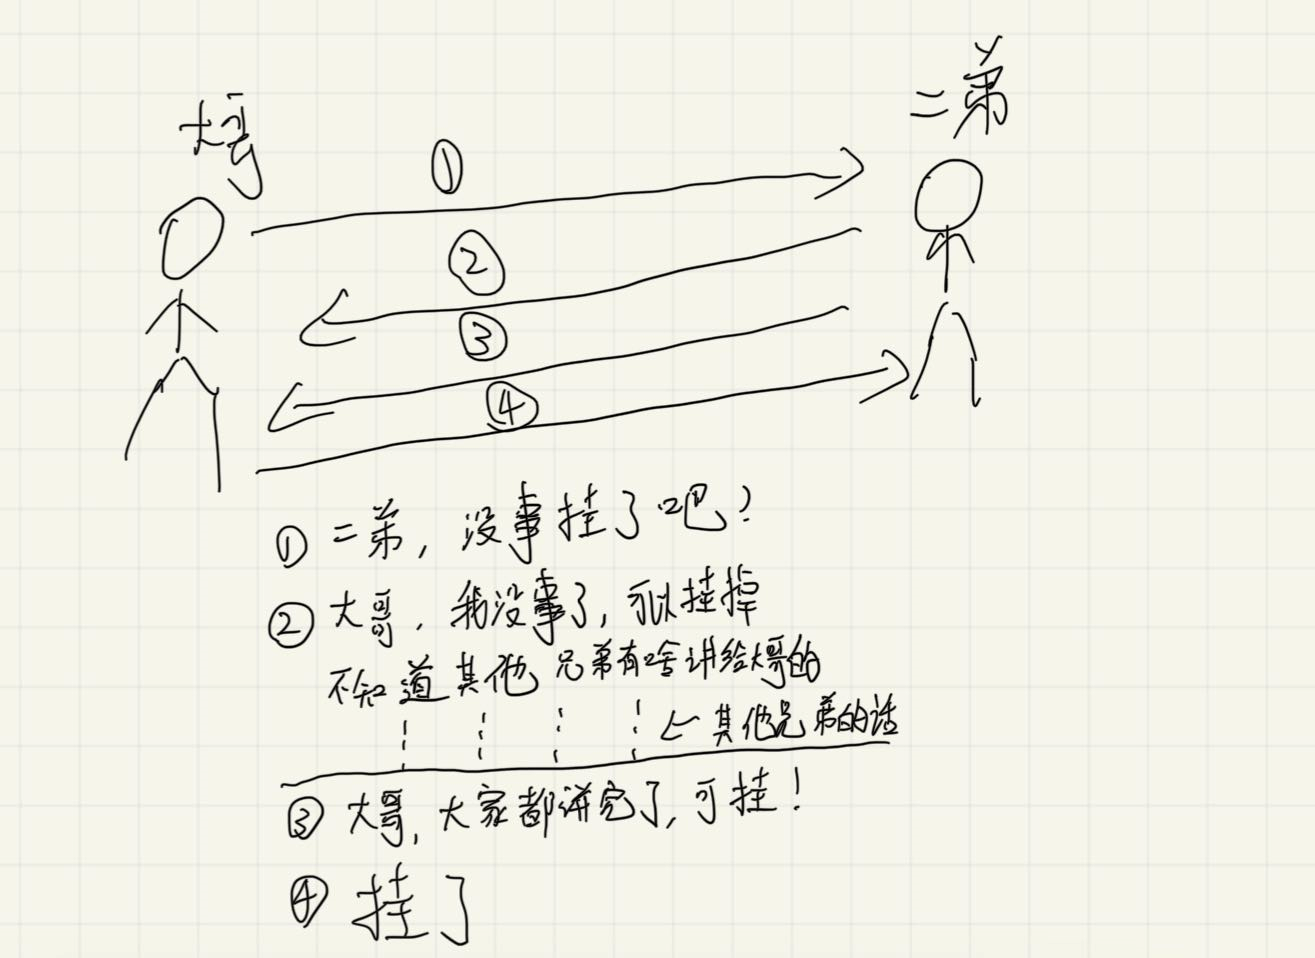 大哥
二弟
①
②
③
④
① 二弟,没事挂了吧?
② 大哥,我没事了,可以挂掉
不知道其他兄弟有啥讲给大哥的
← 其他兄弟的话
③ 大哥,大家都讲完了,可挂!
④ 挂了